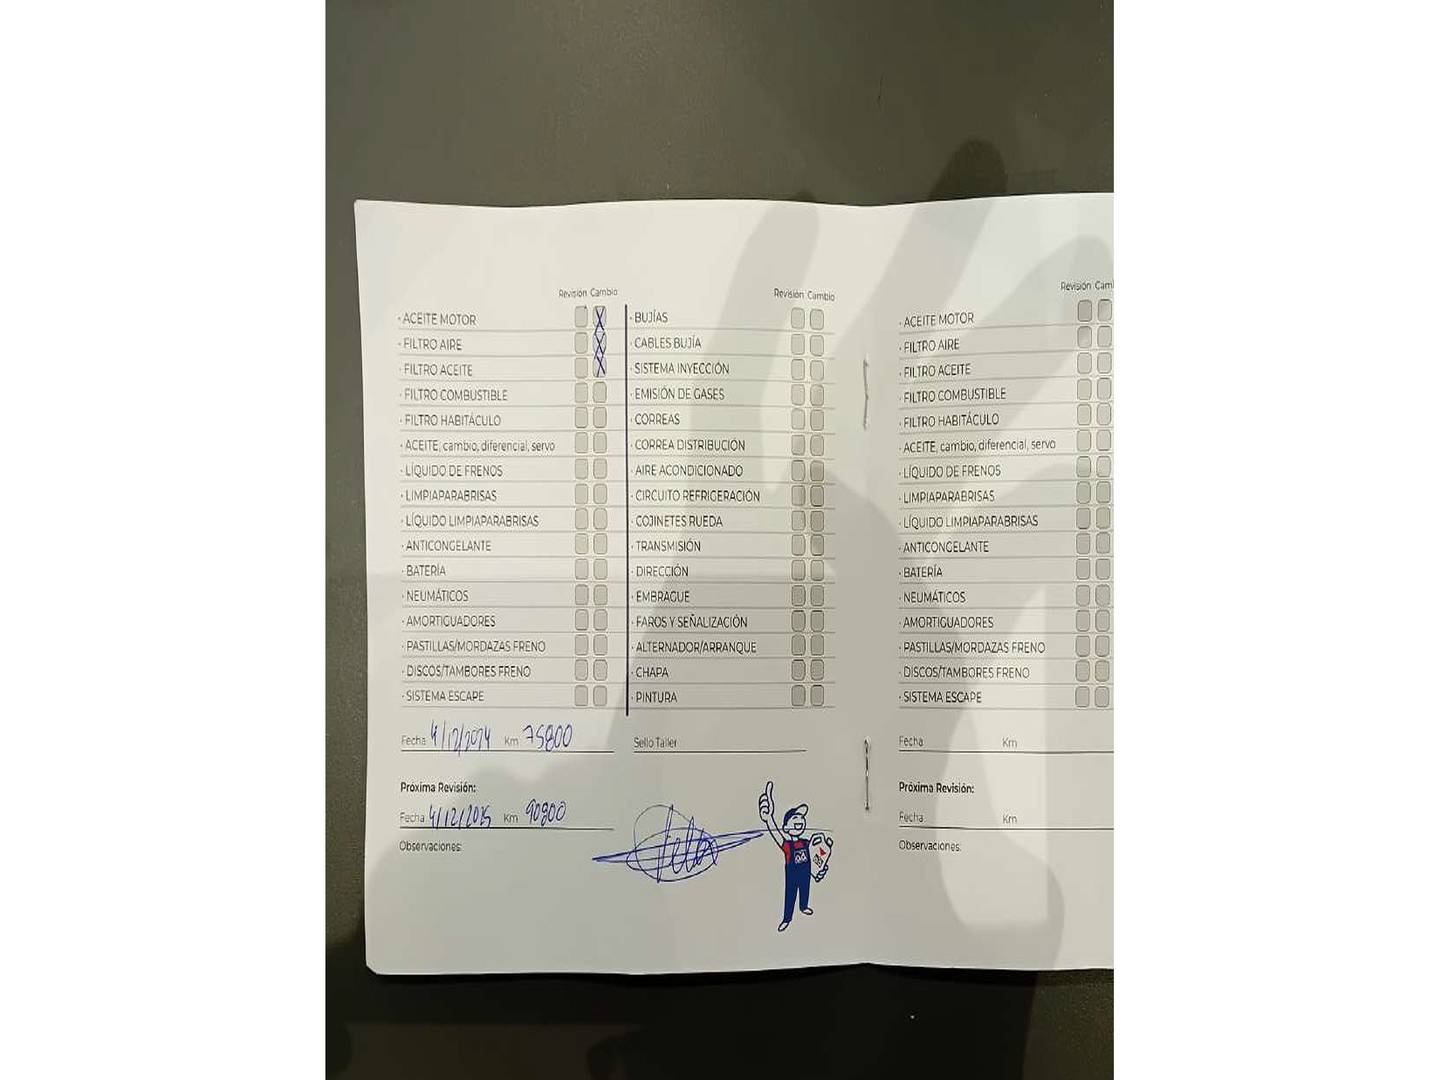 Revisión Cambio
· ACEITE MOTOR
· FILTRO AIRE
· FILTRO ACEITE
· FILTRO COMBUSTIBLE
· FILTRO HABITÁCULO
· ACEITE, cambio, diferencial, servo
· LÍQUIDO DE FRENOS
· LIMPIAPARABRISAS
· LÍQUIDO LIMPIAPARABRISAS
· ANTICONGELANTE
· BATERÍA
· NEUMÁTICOS
· AMORTIGUADORES
· PASTILLAS/MORDAZAS FRENO
· DISCOS/TAMBORES FRENO
· SISTEMA ESCAPE
Fecha 4/12/2024 Km 75800
Próxima Revisión:
Fecha 4/12/2025 Km 90800
Observaciones:
Revisión Cambio
· BUJÍAS
· CABLES BUJÍA
· SISTEMA INYECCIÓN
· EMISIÓN DE GASES
· CORREAS
· CORREA DISTRIBUCIÓN
· AIRE ACONDICIONADO
· CIRCUITO REFRIGERACIÓN
· COJINETES RUEDA
· TRANSMISIÓN
· DIRECCIÓN
· EMBRAGUE
· FAROS Y SEÑALIZACIÓN
· ALTERNADOR/ARRANQUE
· CHAPA
· PINTURA
Sello Taller
Revisión Cam
· ACEITE MOTOR
· FILTRO AIRE
· FILTRO ACEITE
· FILTRO COMBUSTIBLE
· FILTRO HABITÁCULO
· ACEITE, cambio, diferencial, servo
· LÍQUIDO DE FRENOS
· LIMPIAPARABRISAS
· LÍQUIDO LIMPIAPARABRISAS
· ANTICONGELANTE
· BATERÍA
· NEUMÁTICOS
· AMORTIGUADORES
· PASTILLAS/MORDAZAS FRENO
· DISCOS/TAMBORES FRENO
· SISTEMA ESCAPE
Fecha Km
Próxima Revisión:
Fecha Km
Observaciones: